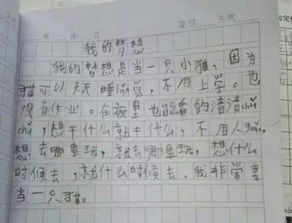 星期 天气
月 日
我的梦想
我的梦想是当一只小猫，因为
猫可以天天睡懒觉，不用上学。也
没有作业。在夜里也能看的清清chǔ
chǔ，想干什么就干什么，不用人guǎn。
想去哪里玩，就去哪里玩，想什么
时候去，就什么时候去，我非常喜
当一只猫。